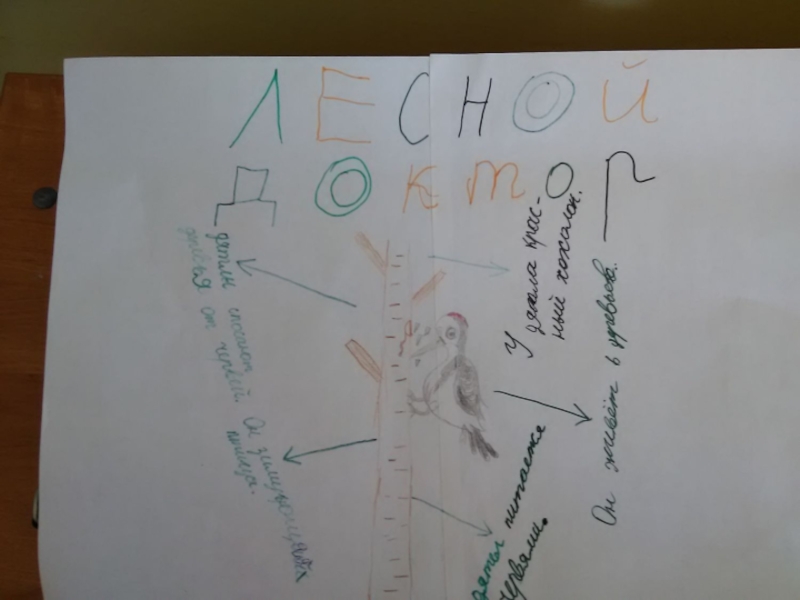 ЛЕСНОЙ
ДОКТОР
У дятла крас-
ный хохолок.
Он живёт в
дятлы спасают
деревья от червей. Он зимующая
птица.
дятлы питается
червями.